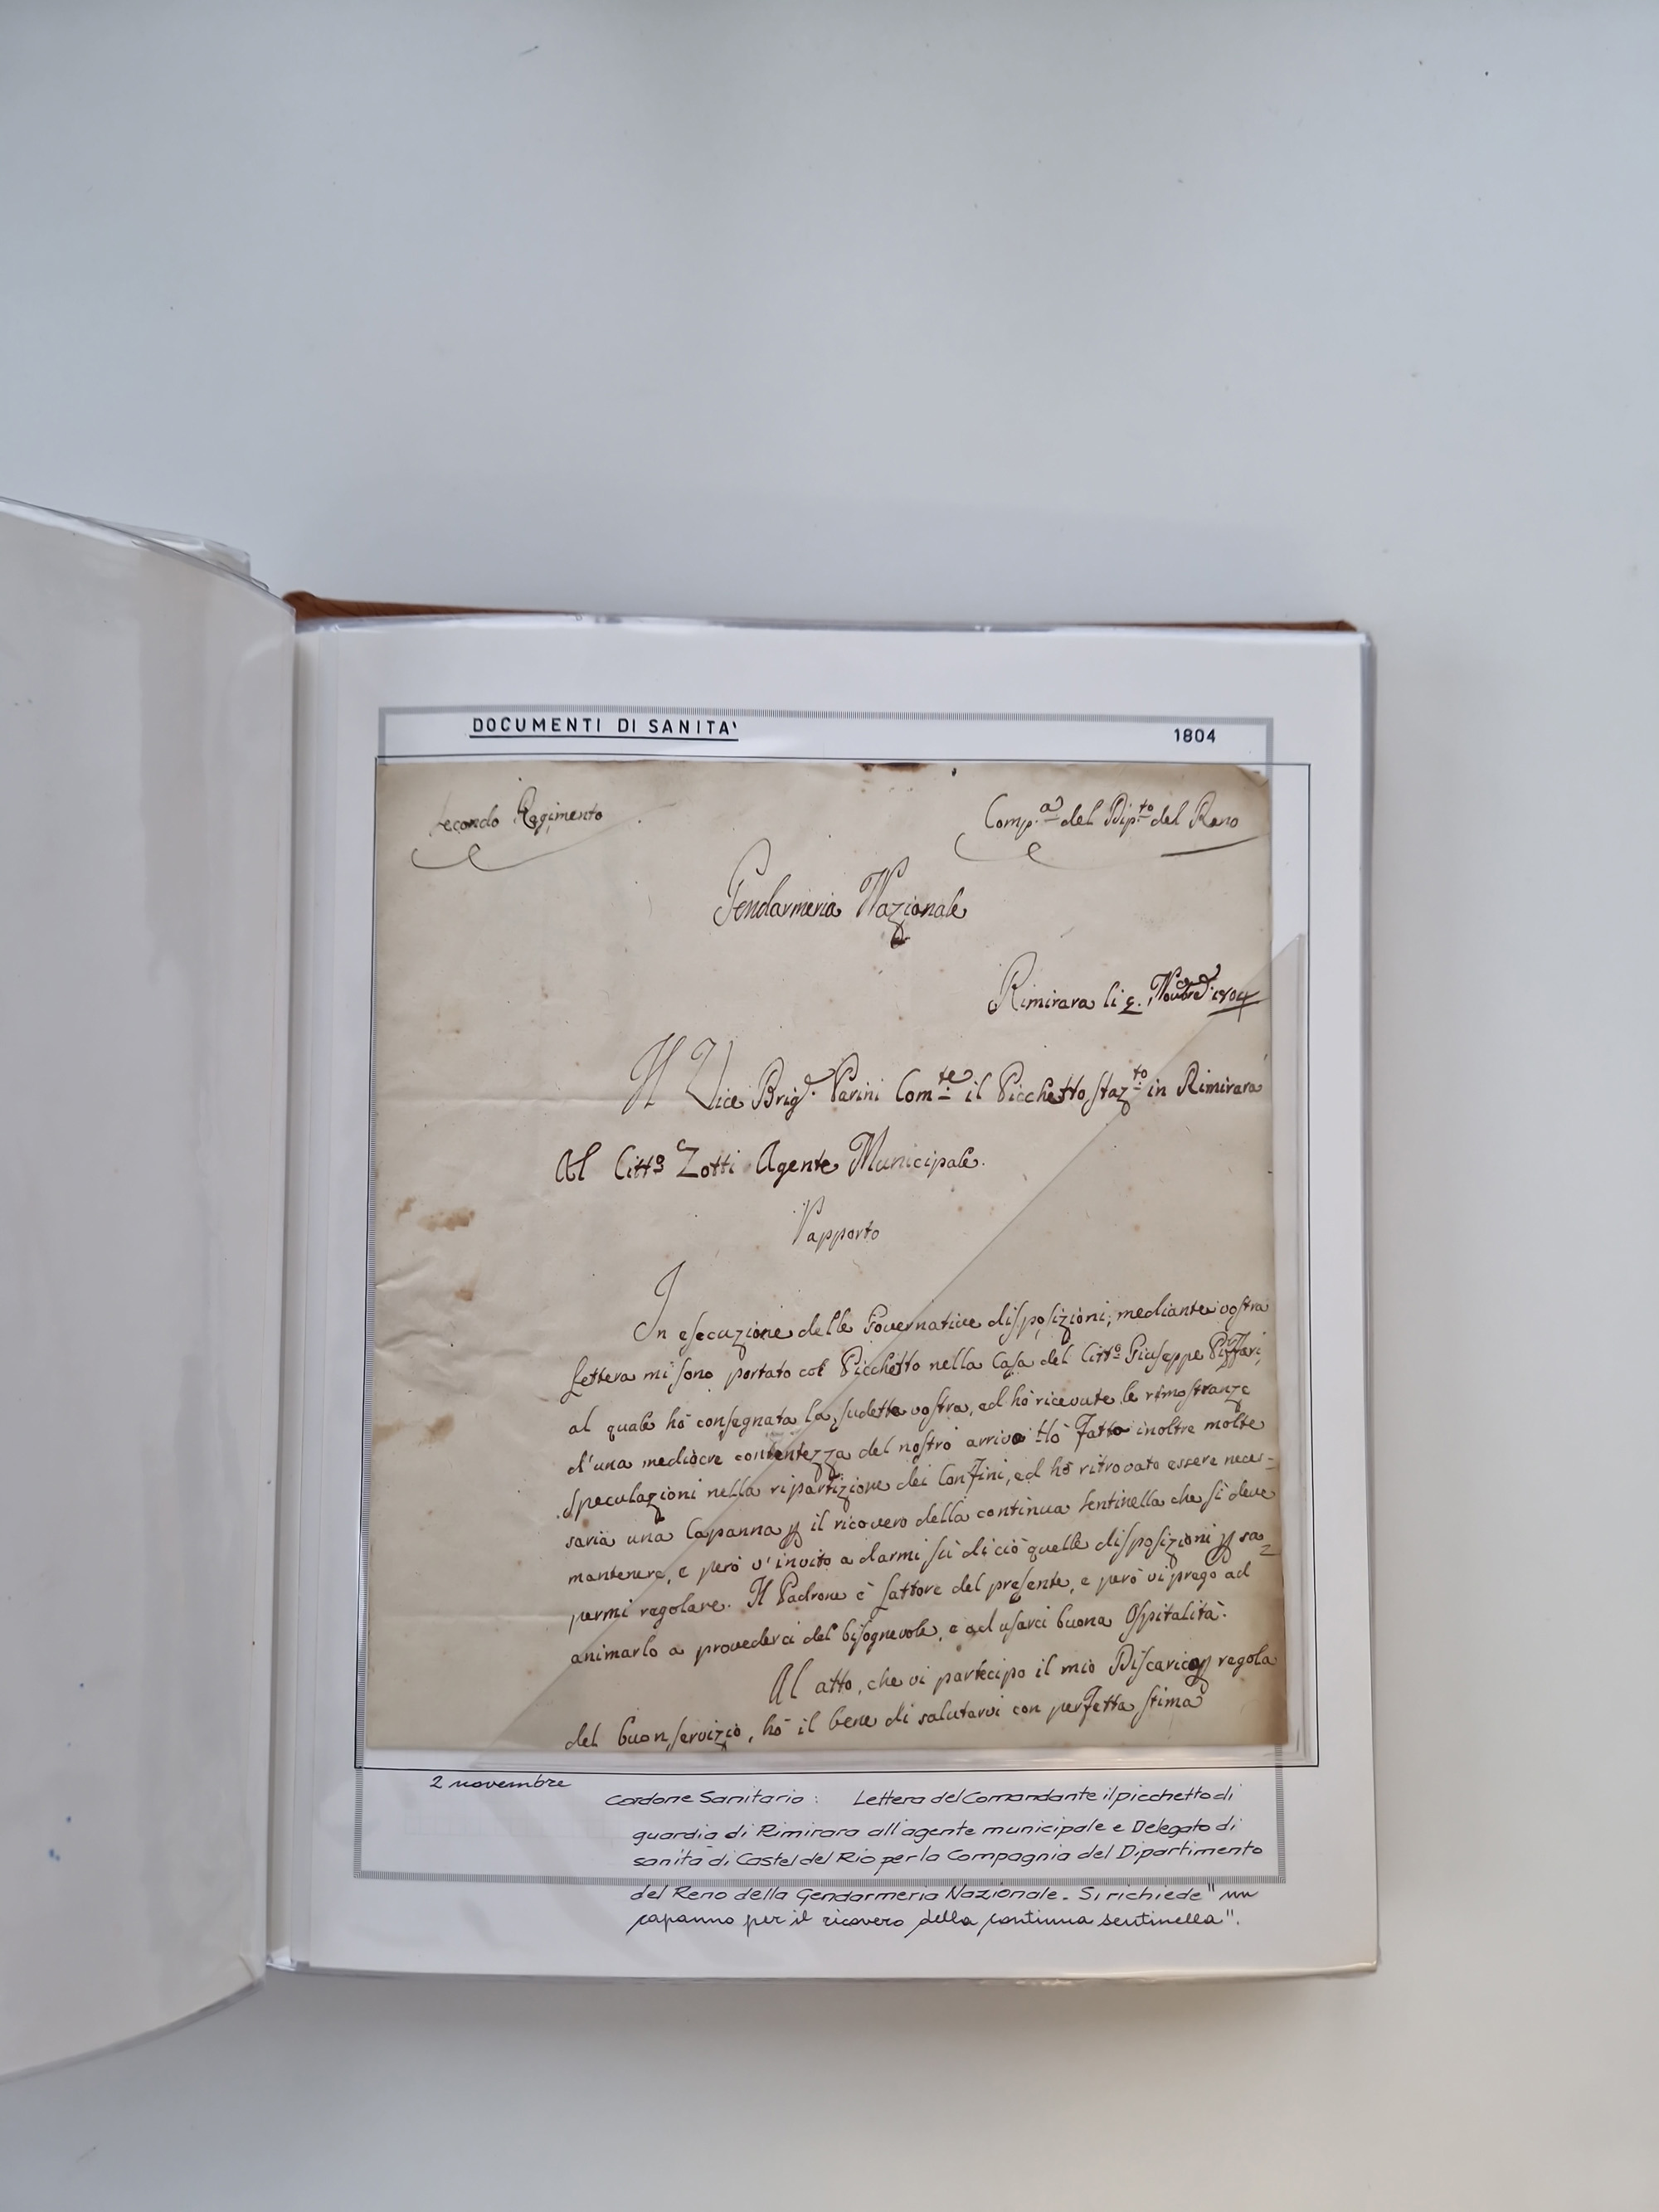 DOCUMENTI DI SANITA'
1804
Secondo Regimento
Comp.a del Dip.to del Reno
Gendarmeria Nazionale
Rimirara li 2. 1804
Il Vice Brig.e Parini Com.te il Picchetto staz.to in Rimirara
Al Citt.o Zotti Agente Municipale.
Rapporto
In esecuzione delle Governative disposizioni, mediante vostra
Lettera mi sono portato col Picchetto nella Casa del Citt.o Giuseppe
al quale hò consegnata la sudetta vostra, ed hò ricevute le rimostranze
d'una mediocre contentezza del nostro arrivo Hò Fatto inoltre molte
speculazioni nella ripartizione dei Confini, ed hò ritrovato essere neces=
saria una Capanna p il ricovero della continua sentinella che si deve
mantenere, e però v'invito a darmi sù di ciò quelle disposizioni p sa=
permi regolare. Il Padrone è Lattore del presente, e però vi prego ad
animarlo a provederci del bisognevole, e ad usarci buona Ospitalità.
Al atto, che vi partecipo il mio Discarico p regola
del buon servizio, hò il bene di salutarvi con perfetta stima
2 novembre
Cordone Sanitario : Lettera del Comandante il picchetto di
guardia di Rimirara all'agente municipale e Delegato di
sanità di Castel del Rio per la Compagnia del Dipartimento
del Reno della Gendarmeria Nazionale. Si richiede "un
capanno per il ricovero della continua sentinella".